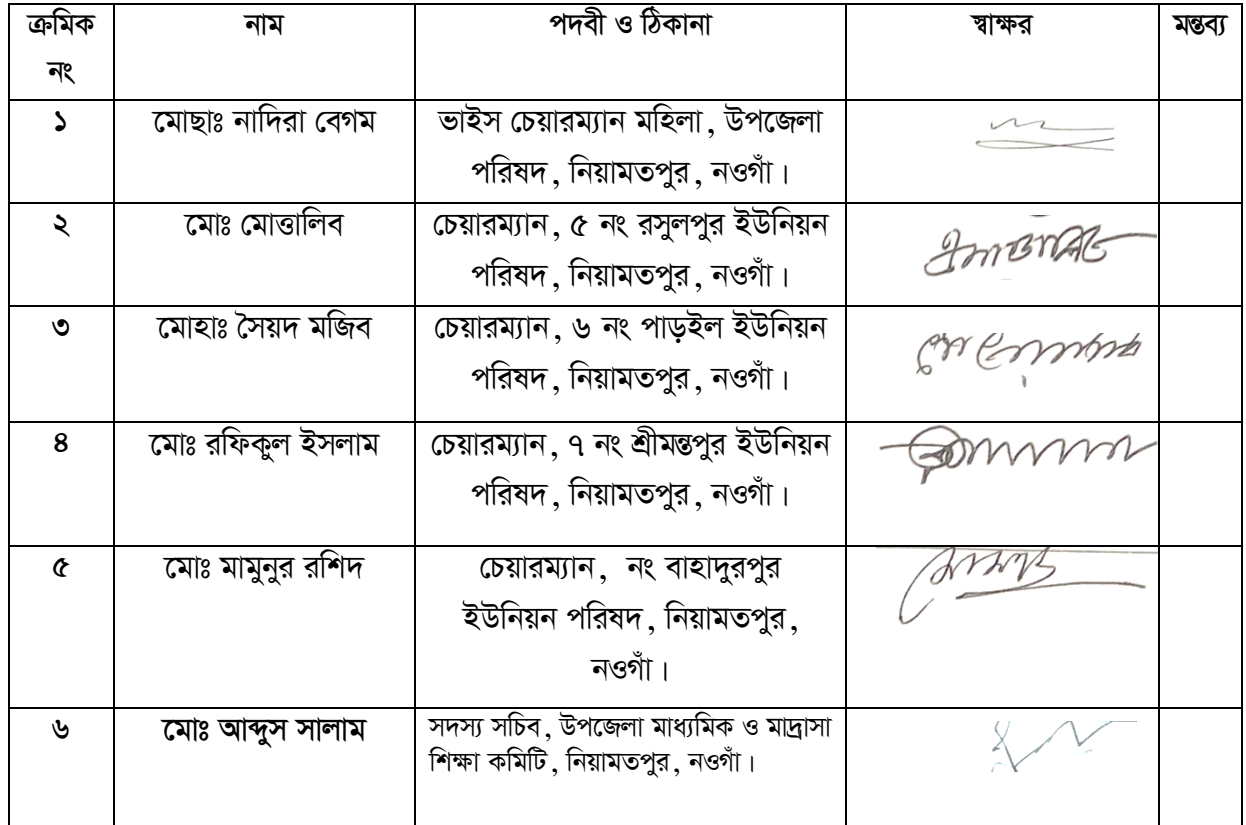 ক্রমিক নং নাম পদবী ও ঠিকানা স্বাক্ষর মন্তব্য
১ মোছাঃ নাদিরা বেগম ভাইস চেয়ারম্যান মহিলা, উপজেলা
পরিষদ, নিয়ামতপুর, নওগাঁ।
২ মোঃ মোত্তালিব চেয়ারম্যান, ৫ নং রসুলপুর ইউনিয়ন
পরিষদ, নিয়ামতপুর, নওগাঁ।
৩ মোহাঃ সৈয়দ মজিব চেয়ারম্যান, ৬ নং পাড়ইল ইউনিয়ন
পরিষদ, নিয়ামতপুর, নওগাঁ।
৪ মোঃ রফিকুল ইসলাম চেয়ারম্যান, ৭ নং শ্রীমন্তপুর ইউনিয়ন
পরিষদ, নিয়ামতপুর, নওগাঁ।
৫ মোঃ মামুনুর রশিদ চেয়ারম্যান, নং বাহাদুরপুর
ইউনিয়ন পরিষদ, নিয়ামতপুর,
নওগাঁ।
৬ মোঃ আব্দুস সালাম সদস্য সচিব, উপজেলা মাধ্যমিক ও মাদ্রাসা
শিক্ষা কমিটি, নিয়ামতপুর, নওগাঁ।